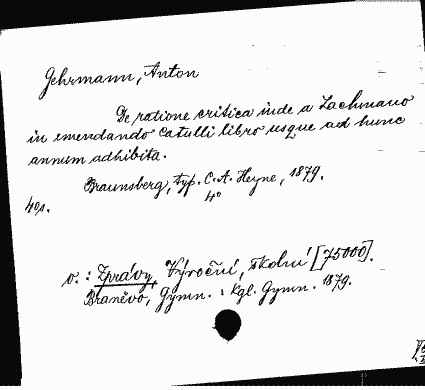 Gehrmann, Anton
De ratione critica inde a Lachmano
in emendando Catulli libro usque ad hunc
annum adhibita.
Braunsberg, typ. C. A. Heyne, 1879.
4°
40s.
v.: Zprávy, Výroční, školní [75000].
Braněvo, Gymn.: Kgl. Gymn. 1879.